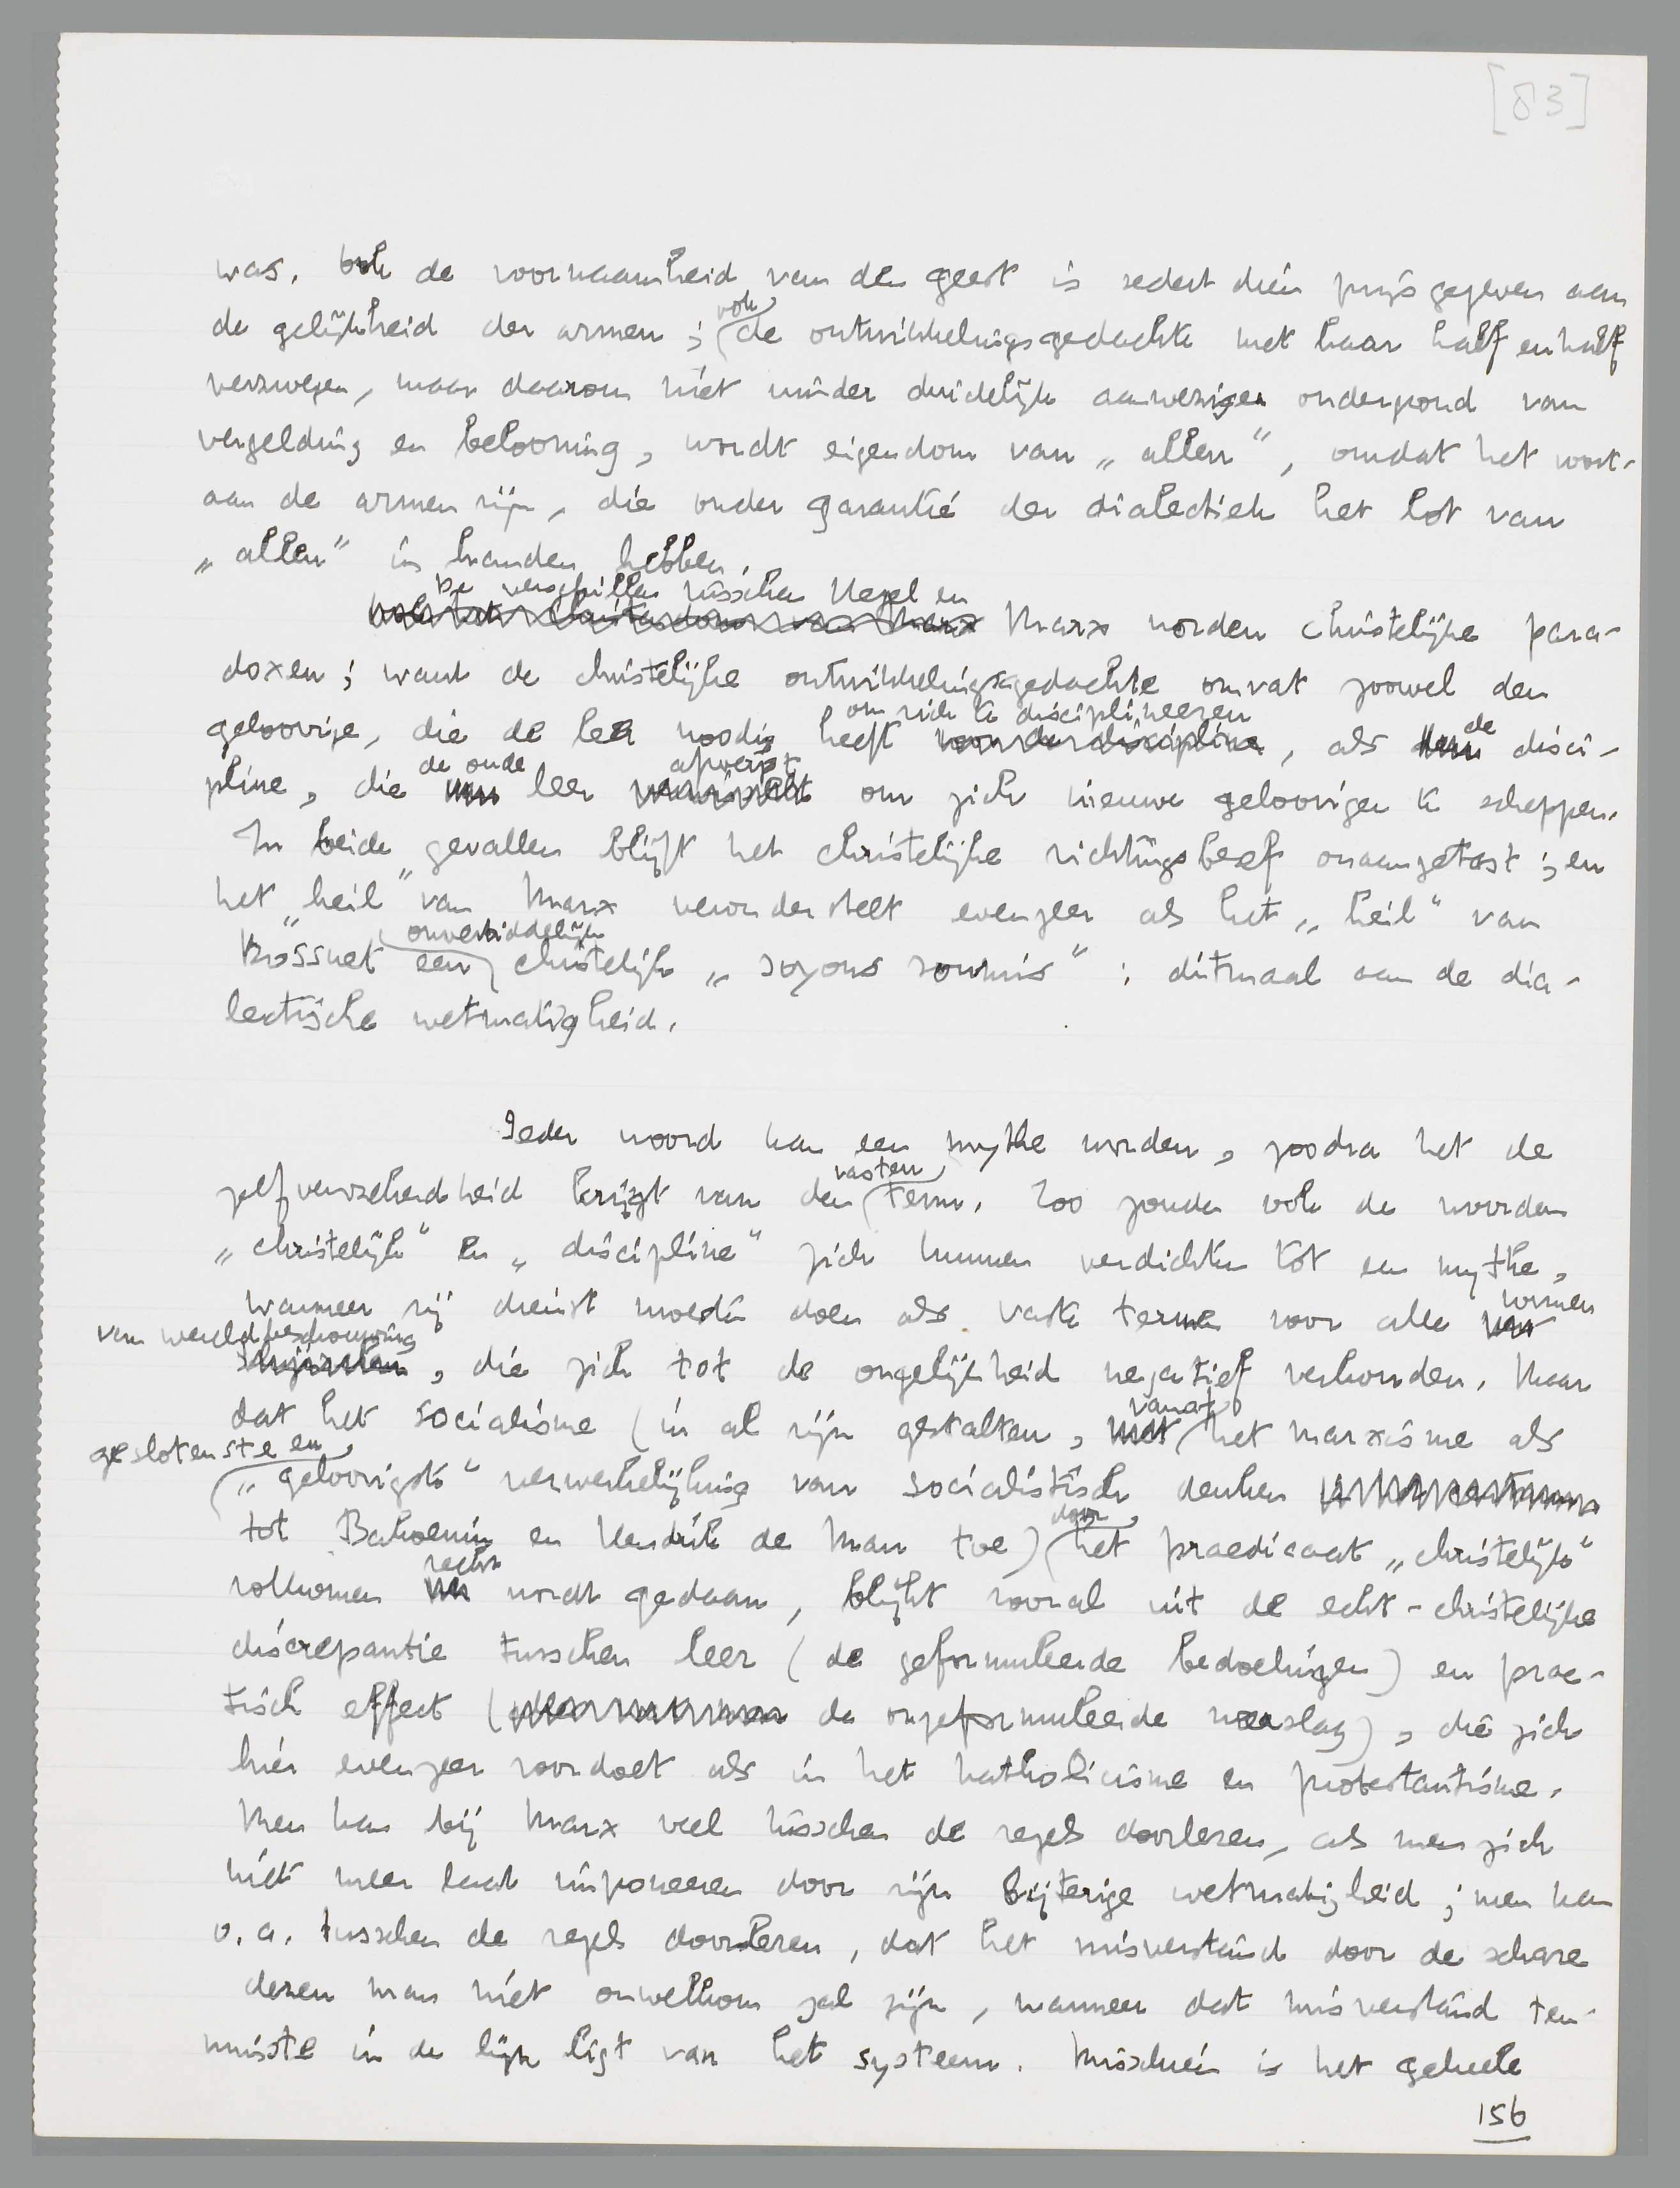 [83]
was. Ook de voornaamheid van den geest is sedert dien prijsgegeven aan
de gelijkheid der armen; ook de ontwikkelingsgedachte met haar half en half
verzwegen, maar daarom niet minder duidelijk aanwezigen ondergrond van
vergelding en belooning, wordt eigendom van „allen”, omdat het voort-
aan de armen zijn, die onder garantie der dialectiek het lot van
„allen” in handen hebben.
De verschillen tusschen Hegel en
Marx worden christelijke para-
doxen; want de christelijke ontwikkelingsgedachte omvat zoowel den
geloovige, die de leer noodig heeft om zich te disciplineeren, als de disci-
pline, die de oude leer afwerpt om zich nieuwe geloovigen te scheppen.
In beide gevallen blijft het christelijke richtingsbesef onaangetast; en
het „heil” van Marx veronderstelt evenzeer als het „heil” van
Bossuet een onverbiddelijk christelijk „soyons soumis”: ditmaal aan de dia-
lectische wetmatigheid.
Ieder woord kan een mythe worden, zoodra het de
zelfverzekerdheid krijgt van den vasten term. Zoo zouden ook de woorden
„christelijk” en „discipline” zich kunnen verdichten tot een mythe,
wanneer zij dienst moesten doen als vaste termen voor alle vormen
van wereldbeschouwing, die zich tot de ongelijkheid negatief verhouden. Maar
dat het socialisme (in al zijn gestalten, vanaf het marxisme als
geslotenste en „geloovigste” verwerkelijking van socialistisch denken
tot Bakoenin en Hendrik de Man toe) door het praedicaat „christelijk”
volkomen recht wordt gedaan, blijkt vooral uit de echt-christelijke
discrepantie tusschen leer (de geformuleerde bedoelingen) en prac-
tisch effect (de ongeformuleerde neerslag), die zich
hier evenzeer voordoet als in het katholicisme en protestantisme.
Men kan bij Marx veel tusschen de regels doorlezen, als men zich
niet meer laat imponeeren door zijn bijterige wetmatigheid; men kan
o.a. tusschen de regels doorlezen, dat het misverstand door de schare
dezen man niet onwelkom zal zijn, wanneer dat misverstand ten-
minste in de lijn ligt van het systeem. Misschien is het geheele
156